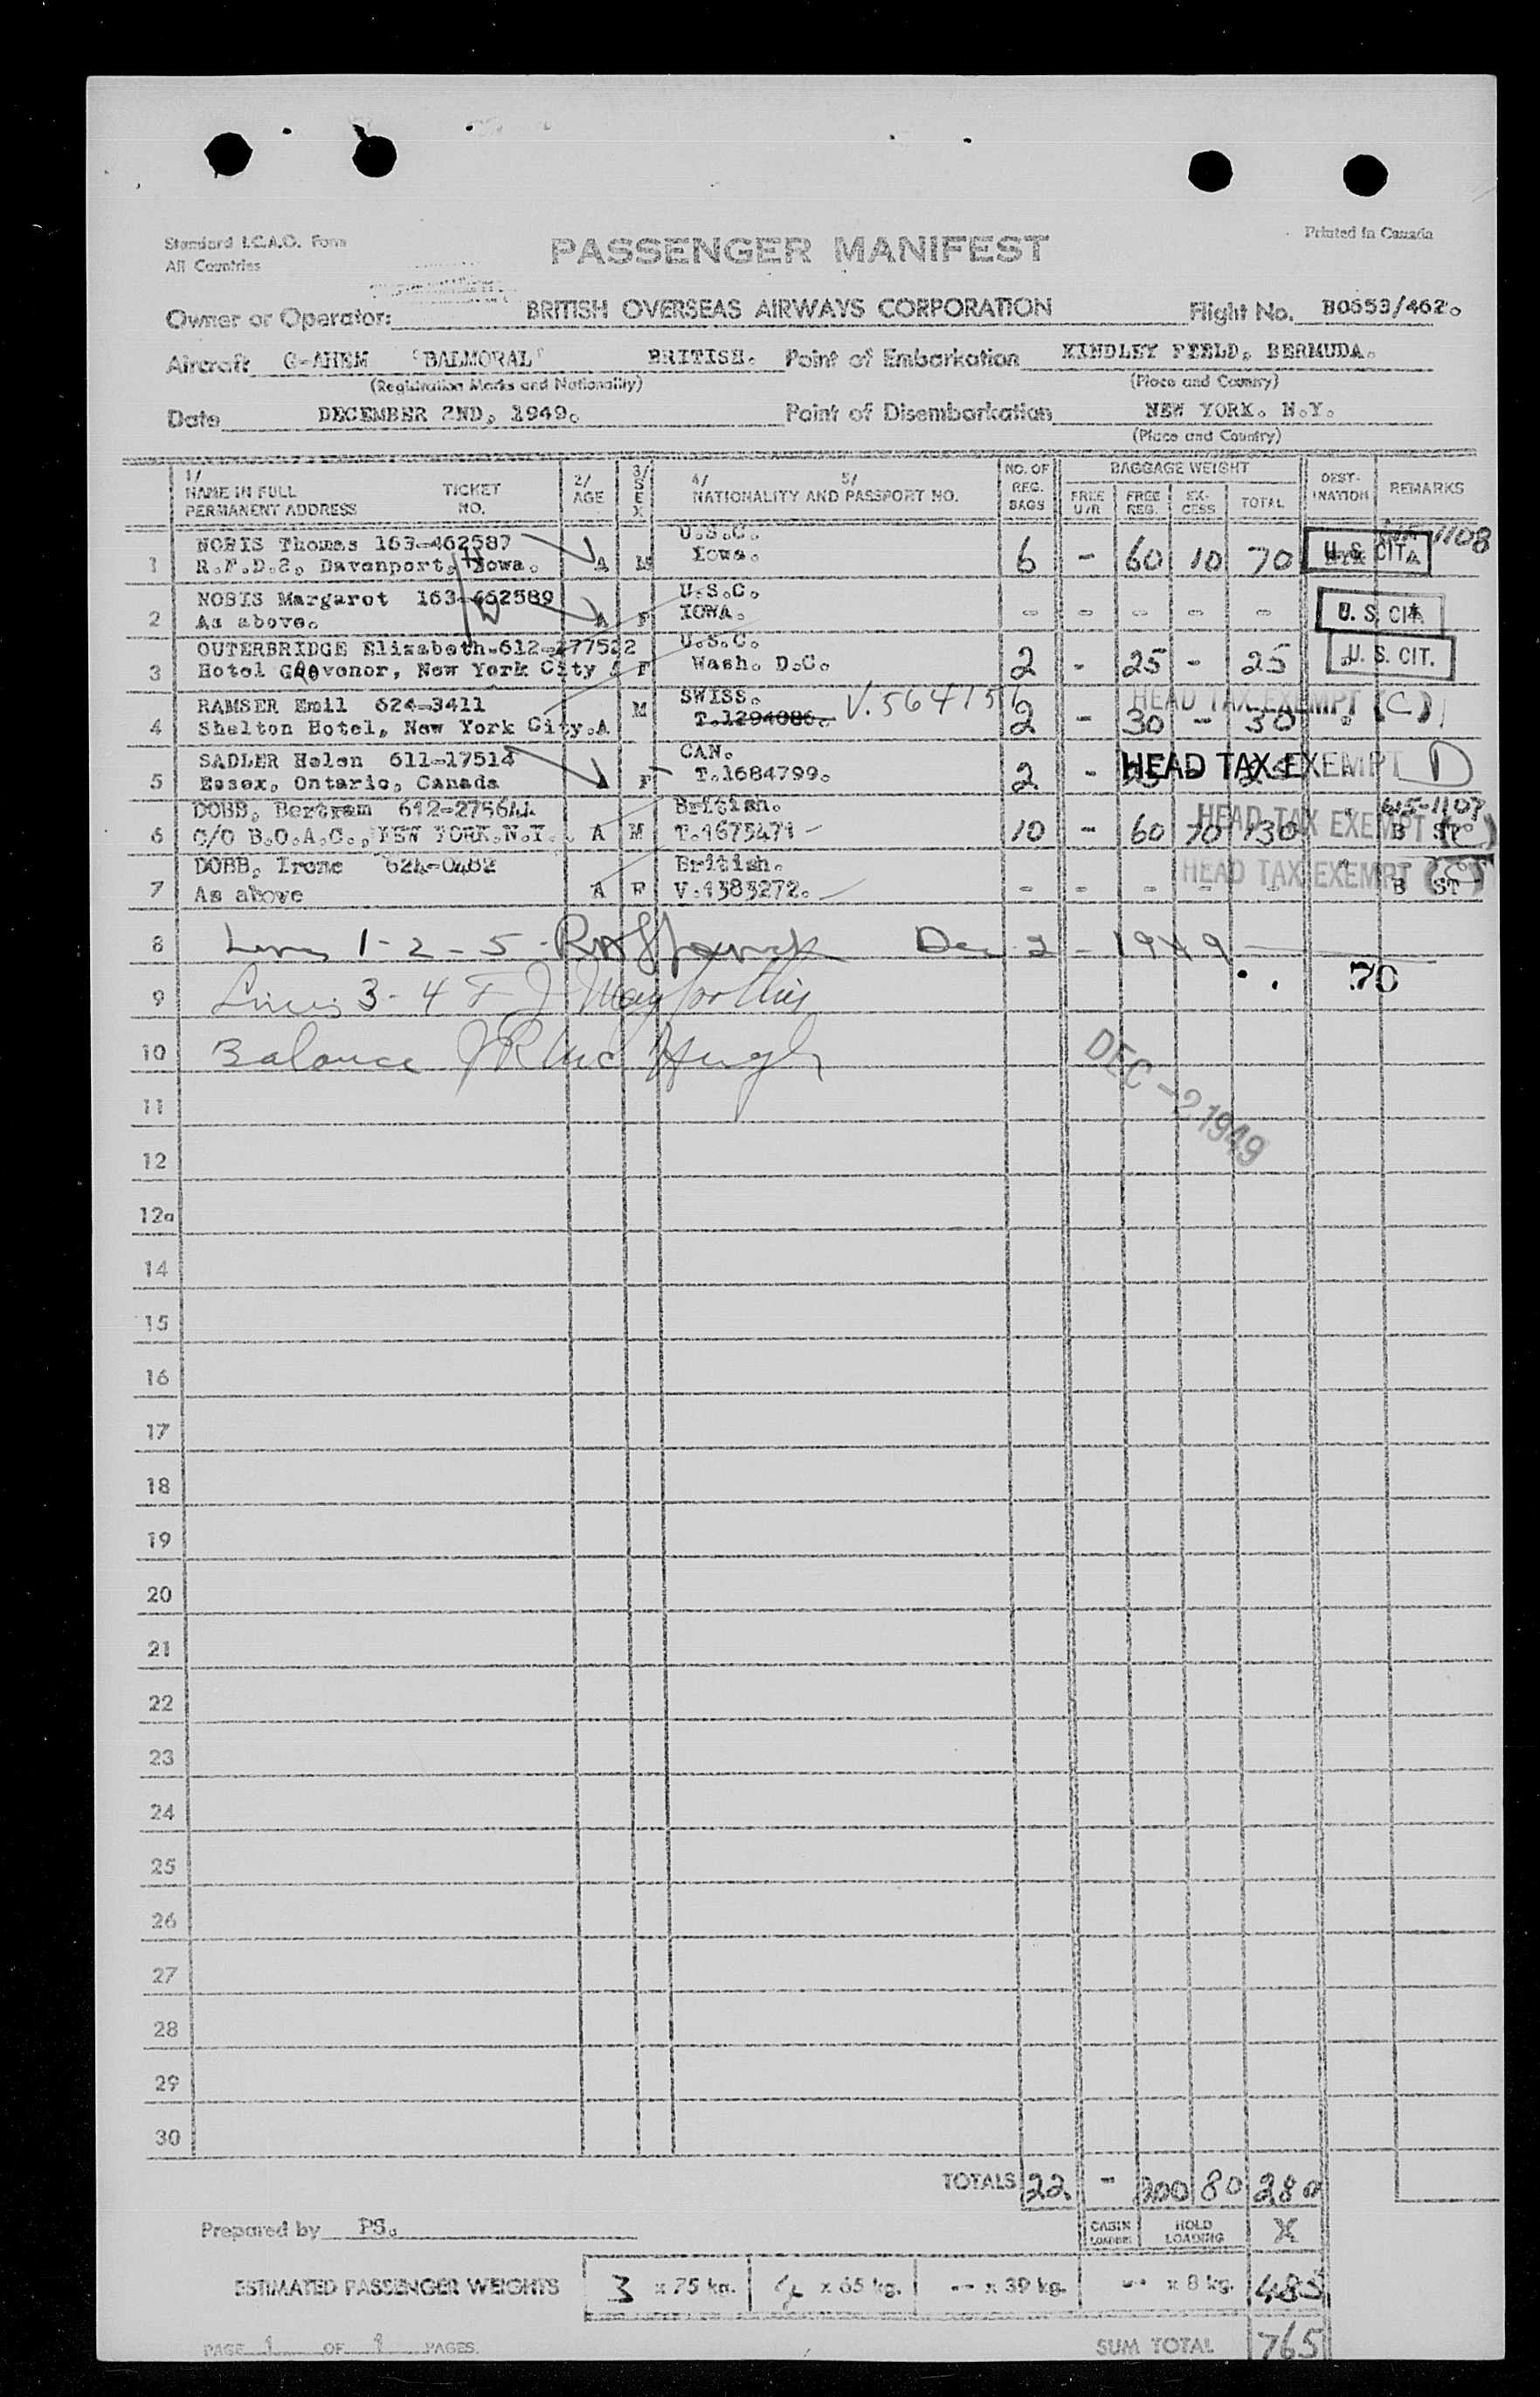 Standard I.C.A.O. Form
All Countries
PASSENGER MANIFEST
Printed in Canada
Owner or Operator: BRITISH OVERSEAS AIRWAYS CORPORATION Flight No. B0553/462.
Aircraft G-AHEM "BALMORAL" BRITISH. Point of Embarkation KINDLEY FIELD, BERMUDA.
(Registration Marks and Nationality) (Place and Country)
Date DECEMBER 2ND, 1949. Point of Disembarkation NEW YORK. N.Y.
(Place and Country)
1/ NAME IN FULL PERMANENT ADDRESS TICKET NO. 2/ AGE 3/ SEX 4/ 5/ NATIONALITY AND PASSPORT NO. NO. OF REG. BAGS BAGGAGE WEIGHT FREE U/R FREE REG. EX-CESS TOTAL DEST-INATION REMARKS
NOBIS Thomas 163-462587 U.S.C. 1108
1 R.F.D.2, Davenport, Iowa. A M Iowa. 6 - 60 10 70 U.S. CIT.
NOBIS Margarot 163-462589 U.S.C.
2 As above. A F IOWA. - - - - - U.S. CIT.
OUTERBRIDGE Elizabeth.612-277522 U.S.C.
3 Hotel Grovenor, New York City A F Wash. D.C. 2 - 25 - 25 U.S. CIT.
RAMSER Emil 624-3411 M SWISS. V.564156 HEAD TAX EXEMPT (C)
4 Shelton Hotel, New York City.A T.1294086. 2 - 30 - 30 "
SADLER Helen 611-17514 CAN.
5 Essex, Ontario, Canada A F T.1684799. 2 - 25 - 25 HEAD TAX EXEMPT D
DOBB, Bertram 612-275644 British. 615-1107
6 C/O B.O.A.C., NEW YORK.N.Y. A M T.1675471 10 - 60 70 130 HEAD TAX EXEMPT (C) B ST
DOBB, Irene 624-0482 British. HEAD TAX EXEMPT
7 As above A F V.1383272. - - - - - " B ST
8 Lines 1-2-5- Dec 2 - 1949
9 Lines 3-4 70
10 Balance
DEC -2 1949
11
12
12a
14
15
16
17
18
19
20
21
22
23
24
25
26
27
28
29
30
TOTALS 22 - 200 80 280
Prepared by PS. CABIN LOADING HOLD LOADING X
ESTIMATED PASSENGER WEIGHTS 3 x 75 kg. 4 x 65 kg. -- x 39 kg. -- x 8 kg. 485
PAGE 1 OF 1 PAGES. SUM TOTAL 765